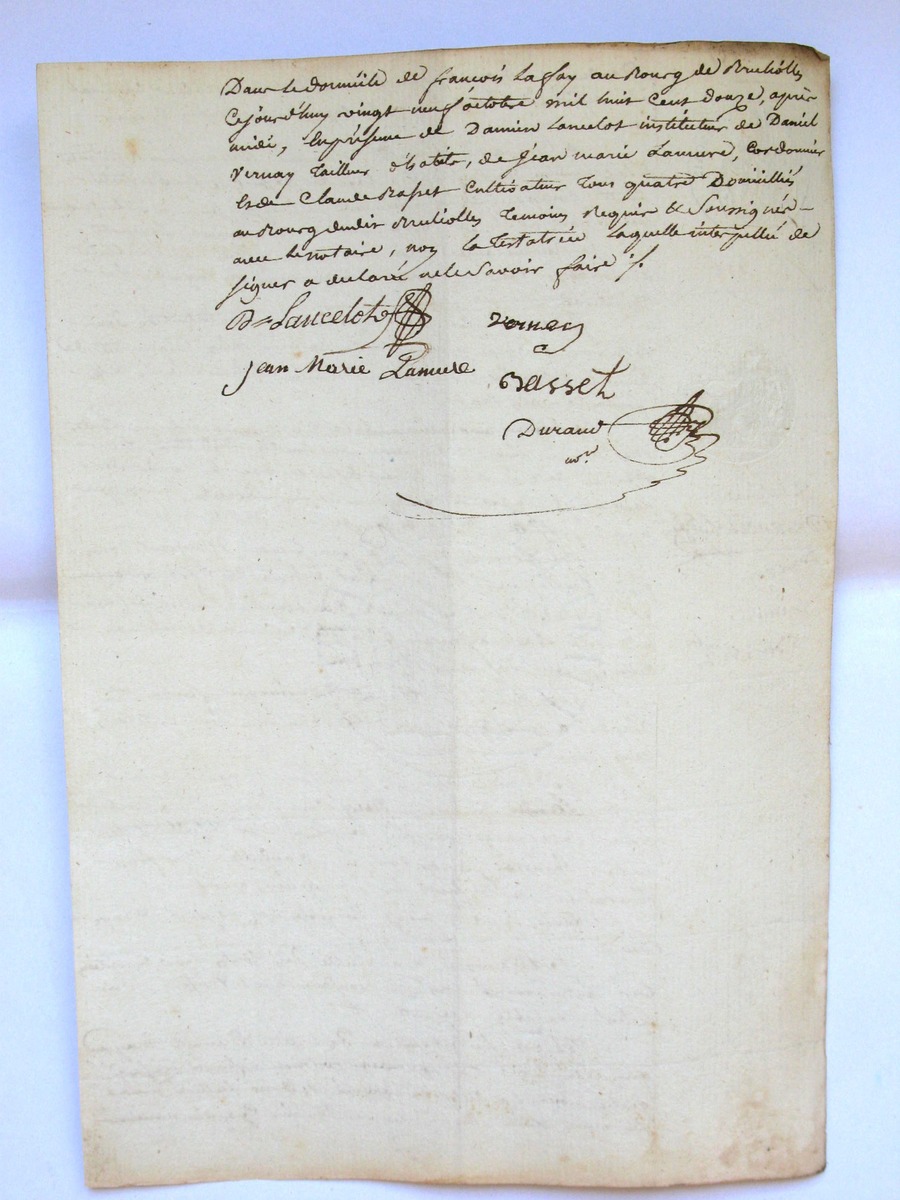 Dans le domicile de françois Laffay au Bourg de Brulliolles
Cejourd'huy vingt neuf octobre mil huit cent douze, après
midi, En présence de Damien Lancelot instituteur de Daniel
Vernay Tailleur d'habits, de Jean marie Lamure, Cordonnier
Et de Claude Basset Cultivateur Tous quatre Domiciliés
au Bourg dudit Brulliolles Temoins Requis Et Soussignés
avec le notaire, non la Testatrice Laquelle interpellée de
signer a déclaré ne le Savoir faire ./.
Dn Lancelot vernay
Jean Marie Lamure Basset
Durand
nore